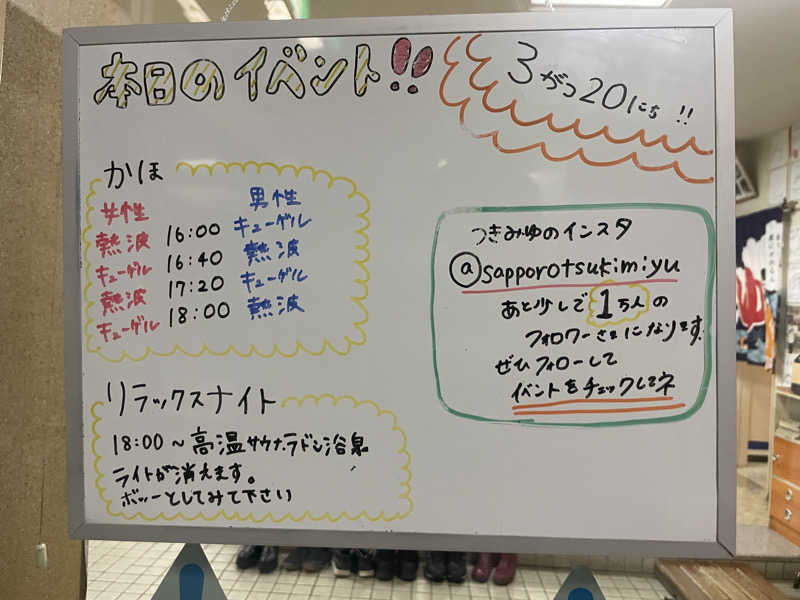 本日のイベント!!
3がつ20にち!!
かほ
女性 男性
熱波 16:00 キューゲル
キューゲル 16:40 熱波
熱波 17:20 キューゲル
キューゲル 18:00 熱波
リラックスナイト
18:00~高温サウナ、ラドン浴泉
ライトが消えます。
ボッーとしてみて下さい
つきみゆのインスタ
@sapporotsukimiyu
あと少しで1万人の
フォロワーさまになります。
ぜひフォローして
イベントをチェックしてネ